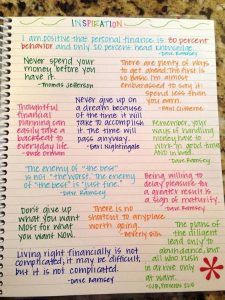 INSPIRATION
I am positive that personal finance is 80 percent
behavior and only 20 percent head knowledge.
-Dave Ramsey
Never spend your
money before you
have it.
-Thomas Jefferson
There are plenty of ways
to get ahead. The first is
so basic I'm almost
embarrassed to say it:
spend less than
you earn.
-Paul Clitheroe
Thoughtful
financial
planning can
easily take a
backseat to
everyday life.
-Suze Orman
Never give up on
a dream because
of the time it will
take to accomplish
it. The time will
pass anyway.
-Earl Nightingale
Remember, your
ways of handling
money have to
work in good time
and in bad.
-Dave Ramsey
The enemy of "the best"
is not "the worst." The enemy
of "the best" is "just fine."
-Dave Ramsey
Being willing to
delay pleasure for
a greater result is
a sign of maturity.
-Dave Ramsey
Don't give up
what you want
most for what
you want now.
There is no
shortcut to anyplace
worth going.
-Beverly Sills
The plans of
the diligent
lead only to
abundance, but
all who rush
in arrive only
at want.
Living right financially is not
complicated; it may be difficult,
but it is not complicated.
-Dave Ramsey